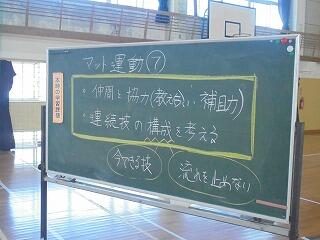 マット運動⑦
本時の学習課題
・仲間と協力(教え合い、補助)
・連続技の構成を考える
今できる技
流れを止めない